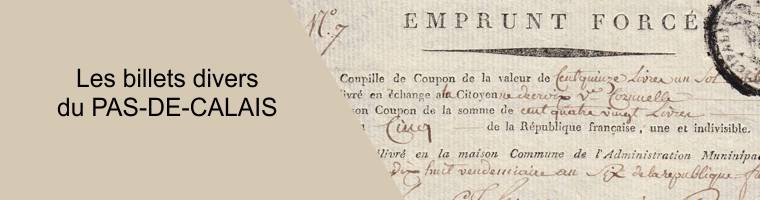 Les billets divers
du PAS-DE-CALAIS
N.º 7
EMPRUNT FORCÉ
Coupille de Coupon de la valeur de Cent quinze Livres un Sol
livré en échange à la Citoyenne decroix Ve
son Coupon de la somme de cent quatre vingt Livres
Cinq de la République française, une et indivisible.
livré en la maison Commune de l'Administration Muninipa
dix huit vendemiaire an Six de la republique